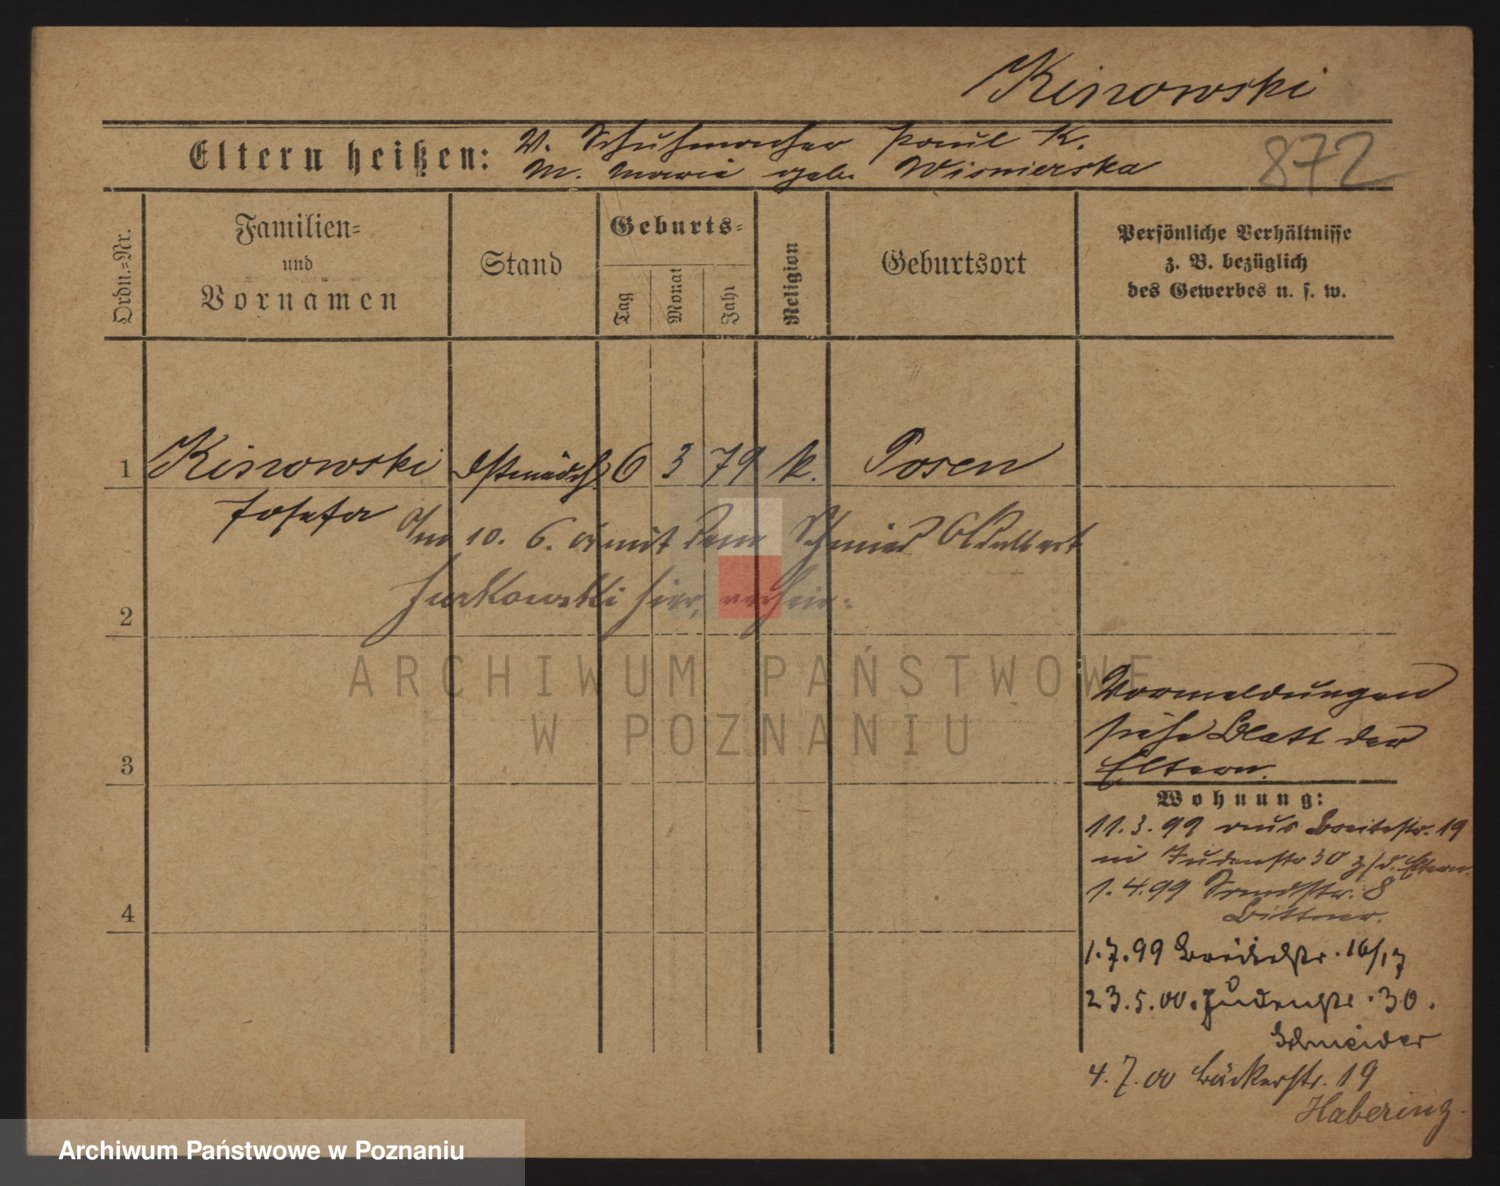 Kinowski
Eltern heißen: V. Schuhmacher Paul K.
M. Maria geb. Wisnierska
872
Ordn.=Nr.
Familien=
und
Vornamen
Stand
Geburts=
Tag
Monat
Jahr
Religion
Geburtsort
Persönliche Verhältnisse
z. B. bezüglich
des Gewerbes u. s. w.
1 Kinowski Dstmädch. 6 3 79 k. Posen
Josefa
Am 10. 6. 05 mit dem Schmied Adalbert
hier, verheir=
2
ARCHIWUM PAŃSTWOWE
W POZNANIU
Vormeldungen
siehe Blatt der
Eltern.
3
Wohnung:
11.3.99 aus Breitestr. 19
in Judenstr 30 z/d. Eltern.
1.4.99 8
Bittner.
4
1.7.99 Breitestr. 16/17
23.5.00. Judenstr. 30.
Schneider
4.7.00 Bäckerstr. 19
Habering.
Archiwum Państwowe w Poznaniu